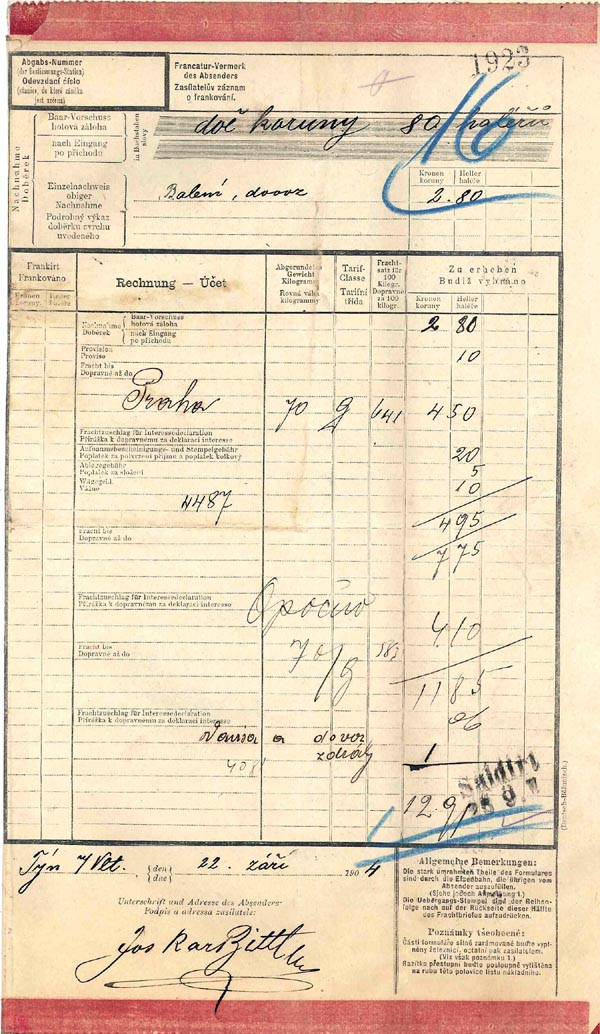 1923
Abgabs-Nummer
(der Bestimmungs-Station)
Odevzdací číslo
(stanice, do které zásilka
jest určena)
Francatur-Vermerk
des Absenders
Zasílatelův záznam
o frankování.
16
Nachnahme
Dobérek
Baar-Vorschuss
hotová záloha
nach Eingang
po příchodu
in Buchstaben
slovy
dvě koruny 80 haléřů
Einzelnachweis
obiger
Nachnahme
Podrobný výkaz
dobérku svrchu
uvedeného
Balení, dovoz
Kronen
koruny
Heller
haléře
2.80
Frankirt
Frankováno
Kronen
koruny
Heller
haléře
Rechnung — Účet
Abgerundetes
Gewicht
Kilogramme
Rovná váha
kilogrammy
Tarif-
Classe
Tarifní
třída
Fracht-
satz für
100
Kilogr.
Dopravné
za 100
kilogr.
Zu erheben
Budiž vybráno
Kronen
koruny
Heller
haléře
Nachnahme
Dobérek
Baar-Vorschuss
hotová záloha
nach Eingang
po příchodu
2 80
Provision
Provise
10
Fracht bis
Dopravné až do
Praha 70 g 641 4 50
Frachtzuschlag für Interessedeclaration
Přirážka k dopravnému za deklaraci interesse
Aufnahmsbescheinigungs- und Stempelgebühr
Poplatek za potvrzení příjmu a poplatek kolkový
20
Ablegegebühr
Poplatek za složení
5
Wägegeld
Vážné
10
4487
495
Fracht bis
Dopravné až do
775
Frachtzuschlag für Interessedeclaration
Přirážka k dopravnému za deklaraci interesse
Opočno
410
Fracht bis
Dopravné až do
70/g 583
1185
Frachtzuschlag für Interessedeclaration
Přirážka k dopravnému za deklaraci interesse
06
a dovoz
1
Saldirt
(Deutsch-Böhmisch.)
Týn n/Vlt. (den) (dne) 22. září 1904
Unterschrift und Adresse des Absenders:
Podpis a adressa zasílatele:
Jos Kar Bittl
Allgemeine Bemerkungen:
Die stark umrahmten Theile des Formulares
sind durch die Eisenbahn, die übrigen vom
Absender auszufüllen.
(Siehe jedoch Anmerkung 1.)
Die Uebergangs-Stempel sind der Reihen-
folge nach auf der Rückseite dieser Hälfte
des Frachtbriefes aufzudrücken.
Poznámky všeobecné:
Části formuláře silně zarámované buďte vypl-
něny železnicí, ostatní pak zasílatelem.
(Viz však poznámku 1.)
Razítka přestupní buďte posloupně vytištěna
na rubu této polovice listu nákladního.